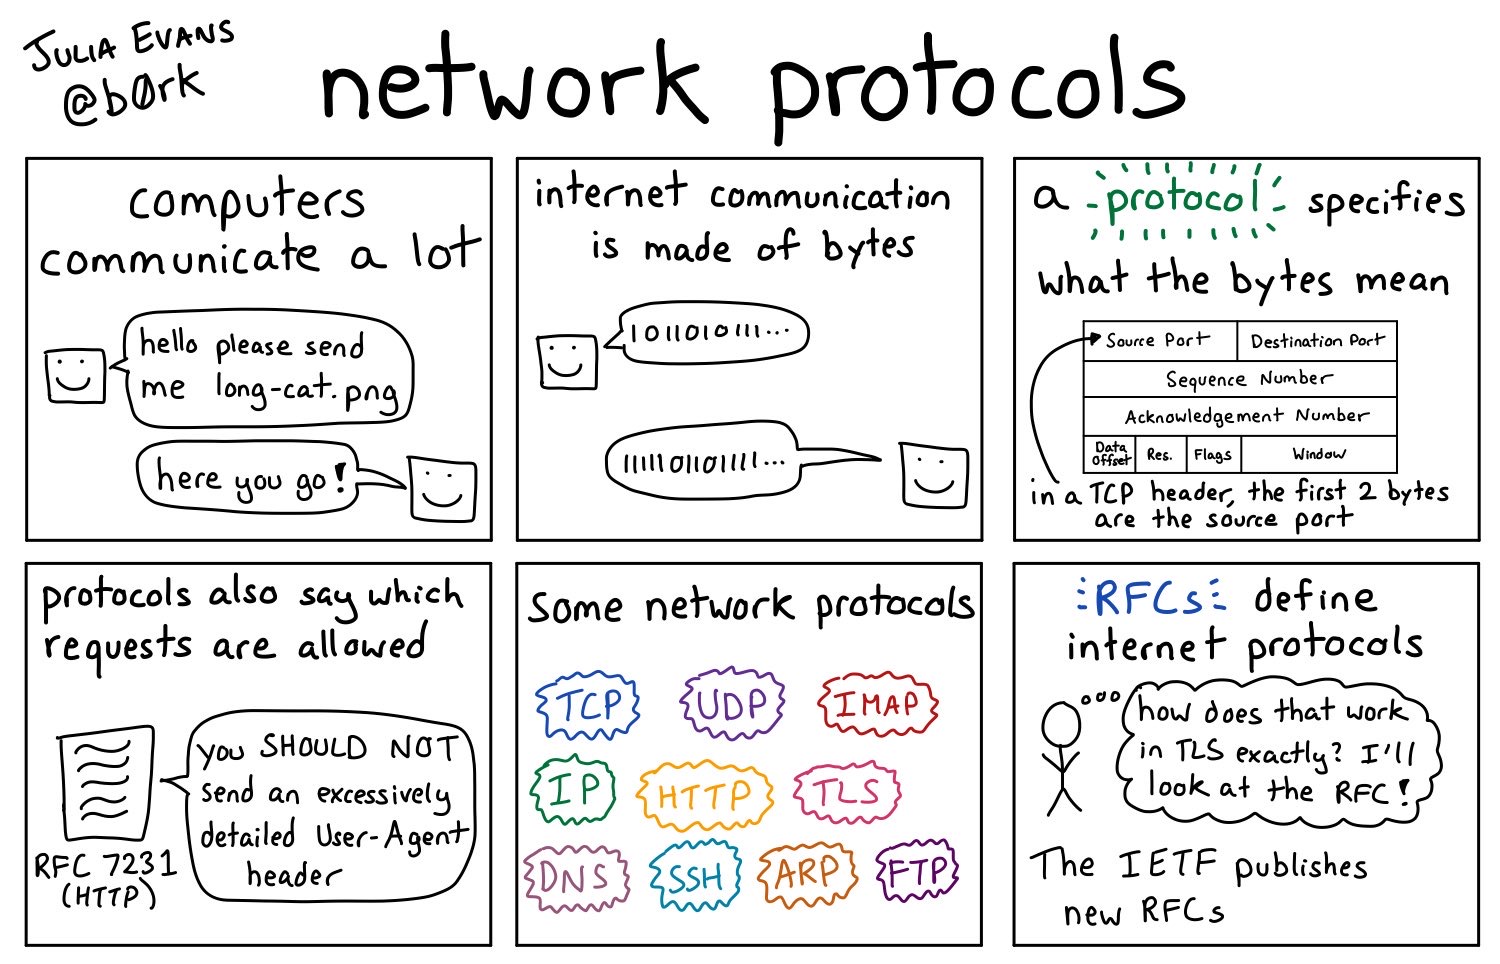 JULIA EVANS
@b0rk
network protocols
computers
communicate a lot
hello please send
me long-cat.png
here you go!
internet communication
is made of bytes
1011010111...
11111011011111...
a protocol specifies
what the bytes mean
Source Port Destination Port
Sequence Number
Acknowledgement Number
Data Offset Res. Flags Window
in a TCP header, the first 2 bytes
are the source port
protocols also say which
requests are allowed
you SHOULD NOT
send an excessively
detailed User-Agent
header
RFC 7231
(HTTP)
Some network protocols
TCP UDP IMAP
IP HTTP TLS
DNS SSH ARP FTP
RFCs define
internet protocols
how does that work
in TLS exactly? I'll
look at the RFC!
The IETF publishes
new RFCs